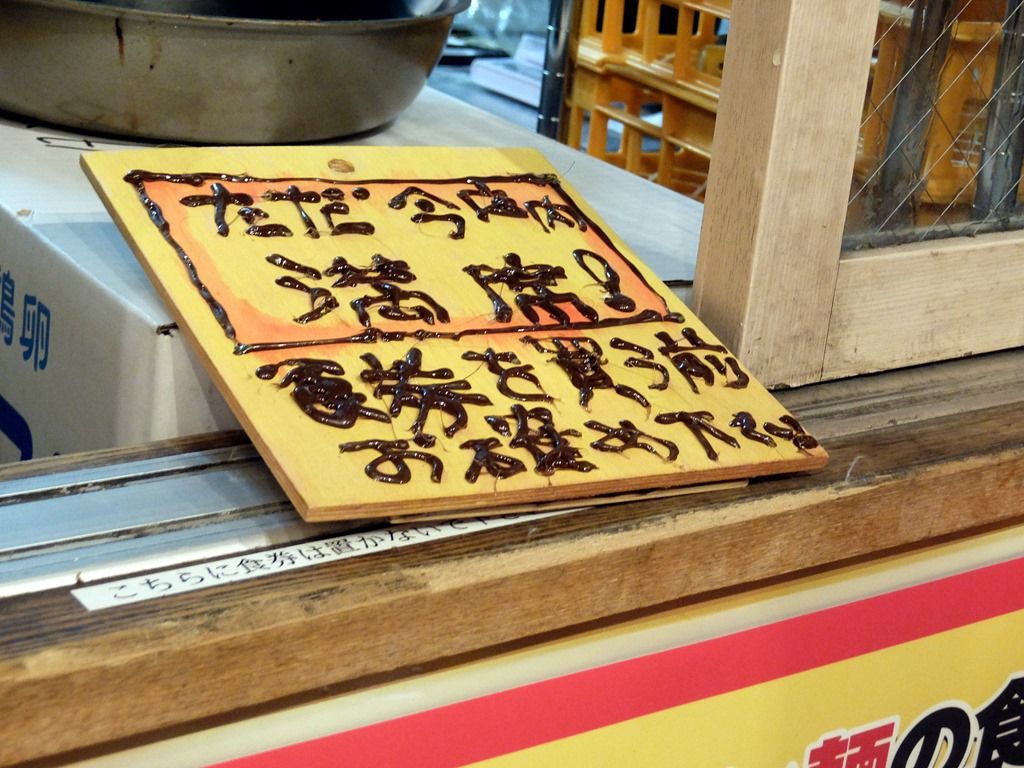 ただ今店内
満席!
食券を買う前
お確かめ下さい
こちらに食券は置かないで
鶏卵
麺の食